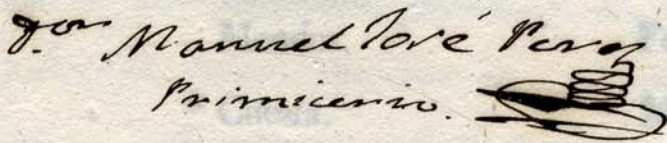 D.or Manuel José Perez
Primicerio.